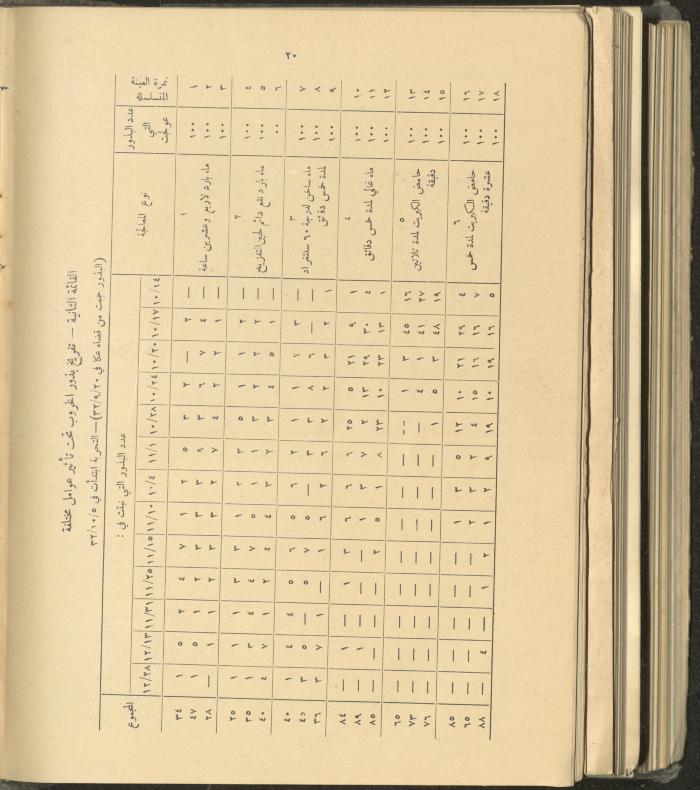 ٢٠
القائمة الثانية — تفريخ بذور الخروب تحت تأثير عوامل مختلفة
(البذور جمعت من قضاء عكا في ٣٢/٩/٢٠) — التجربة ابتدأت في ٣٢/١٠/٥
العينة المتسلسلة عدد البذور التي عولجت نوع المعالجة عدد البذور التي نبقت في : المجموع
١٠/١٤ ١٠/١٧ ١٠/٢٠ ١٠/٢٤ ١٠/٢٨ ١١/١ ١٠/٤ ١١/١٠ ١١/١٥ ١١/٢٥ ١١/٣١ ١٢/١٣ ١٢/٢٨
١
ماء بارد لاربع وعشرين ساعة
١ ١٠٠ — ٢ — ٢ ٣ ٥ ٢ ١ ٧ ٤ ٢ ٥ ١ ٣٤
٢ ١٠٠ — ٤ ٧ ٦ ٣ ٩ ٣ ٣ ٣ ٢ ١ ٥ ١ ٤٧
٣ ١٠٠ — ١ ٢ ٢ ٤ ٧ ٢ ٣ ٣ ٢ ١ ١ — ٢٨
٢
ماء بارد نقع دائم لحين التفريخ
٤ ١٠٠ — ٢ ١ ١ ٥ ٣ ٣ ١ ٣ ٣ ١ ١ ١ ٢٥
٥ ١٠٠ — ٢ ٢ ٢ ٣ ١ ١ ٥ ٧ ٤ ٤ ١ ٣ ٣٥
٦ ١٠٠ — ١ ٥ ٤ ٣ ٢ ٣ ٤ ٤ ٢ ١ ٧ ٤ ٤٠
٣
ماء ساخن لدرجة ٦٠ سنتغراد لمدة خمس دقائق
٧ ١٠٠ — ٣ ٢ ١ ١ ٢ ٦ ٥ ٦ ٥ ٤ ٤ ١ ٤٠
٨ ١٠٠ — — ٦ ٨ ٣ ٣ — ٥ ٧ ٥ — ٥ ٣ ٤٥
٩ ١٠٠ ١ ٢ ٣ ٢ ٢ ٦ ٢ ٦ ١ — ١ ٧ ٣ ٣٦
٤
ماء غالي لمدة خمس دقائق
١٠ ١٠٠ ١ ٩ ٢١ ٥ ٢٥ ٦ ٦ ٦ ٣ ١ — ١ — ٨٤
١١ ١٠٠ ٤ ٣٠ ٢٩ ١٣ ٢ ٧ ٣ ١ — — — ١ — ٨٩
١٢ ١٠٠ ١ ١٣ ٢٣ ١٠ ٢٣ ٨ ١ ٥ ٢ — — — — ٨٥
٥
حامض الكبريت لمدة ثلاثين دقيقة
١٣ ١٠٠ ١٦ ٤٥ ٣ ١ — — — — — — — — — ٦٥
١٤ ١٠٠ ٢٧ ٤١ ١ ٤ — — — — — — — — — ٧٣
١٥ ١٠٠ ١٩ ٤٨ ٣ ٥ ١ — — — — — — — — ٧٦
٦
حامض الكبريت لمدة خمس عشرة دقيقة
١٦ ١٠٠ ٤ ٢٩ ٢١ ١٠ ١٢ ٥ ٣ ١ — — — — — ٨٥
١٧ ١٠٠ ٧ ١٦ ١٦ ١٥ ٤ ٢ ٣ ٢ — — — — — ٦٥
١٨ ١٠٠ ٥ ١٦ ١٩ ١٠ ١٩ ٩ ٢ ١ ٢ ١ — ٤ — ٨٨